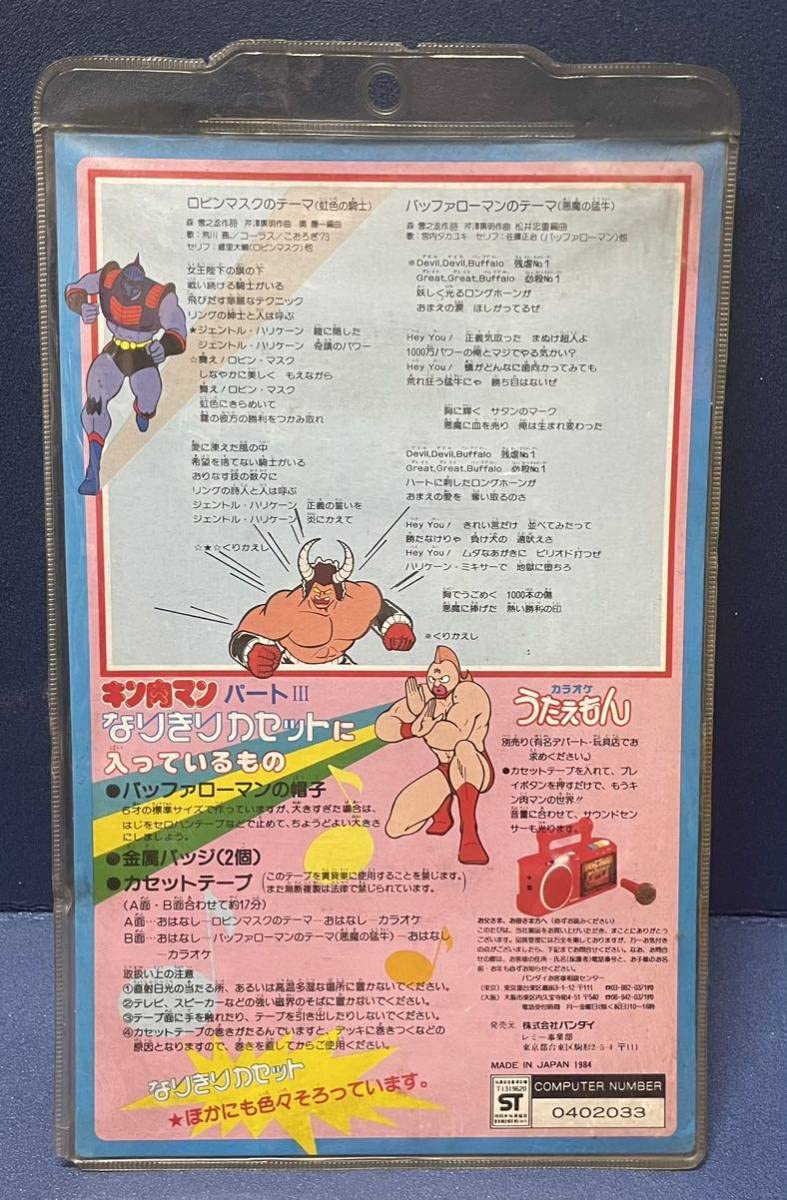 ロビンマスクのテーマ(虹色の騎士)
森 雪之丞作詩 芹澤廣明作曲 奥 慶一編曲
コーラス／こおろぎ'73
セリフ：郷里大輔(ロビンマスク)他
女王陛下の旗の下
戦い続ける騎士がいる
飛びだす華麗なテクニック
リングの紳士と人は呼ぶ
★ジェントル・ハリケーン 鎧に隠した
ジェントル・ハリケーン 奇蹟のパワー
☆舞え！ロビン・マスク
しなやかに美しく もえながら
舞え！ロビン・マスク
虹色にきらめいて
霧の彼方の勝利をつかみ取れ
愛に凍えた風の中
希望を捨てない騎士がいる
おりなす技の数々に
リングの詩人と人は呼ぶ
ジェントル・ハリケーン 正義の誓いを
ジェントル・ハリケーン 炎にかえて
☆★☆くりかえし
バッファローマンのテーマ(悪魔の猛牛)
森 雪之丞作詩 芹澤廣明作曲 松井忠重編曲
歌：宮内タカユキ セリフ：佐藤正治(バッファローマン)他
※Devil,Devil,Buffalo 残虐No1
Great,Great,Buffalo 必殺No1
妖しく光るロングホーンが
おまえの涙 ほしがってるぜ
Hey You！ 正義気取った まぬけ超人よ
1000万パワーの俺とマジでやる気かい？
Hey You！ 蟻がどんなに歯向かってみても
荒れ狂う猛牛にゃ 勝ち目はないぜ
胸に輝く サタンのマーク
悪魔に血を売り 俺は生まれ変わった
Devil,Devil,Buffalo 残虐No1
Great,Great,Buffalo 必殺No1
ハートに刺したロングホーンが
おまえの愛を 奪い取るのさ
Hey You！ きれい言だけ 並べてみたって
勝たなけりゃ 負け犬の 遠吠えさ
Hey You！ ムダなあがきに ピリオド打つぜ
ハリケーン・ミキサーで 地獄に堕ちろ
胸でうごめく 1000本の傷
悪魔に捧げた 熱い勝利の印
※くりかえし
キン肉マン パートIII
なりきりカセットに
入っているもの
●バッファローマンの帽子
6才の標準サイズで作っていますが、大きすぎた場合は、
はじをセロハンテープなどで止めて、ちょうどよい大きさ
にしましょう。
●金属バッジ(2個)
●カセットテープ(このテープを賃貸業に使用することを禁じます。
また無断複製は法律で禁じられています。)
(A面・B面合わせて約17分)
A面…おはなし―ロビンマスクのテーマ―おはなし―カラオケ
B面…おはなし―バッファローマンのテーマ(悪魔の猛牛)―おはなし
―カラオケ
取扱い上の注意
①直射日光の当たる所、あるいは高温多湿な場所に置かないでください。
②テレビ、スピーカーなどの強い磁界のそばに置かないでください。
③テープ面に手を触れたり、テープを引き出したりしないでください。
④カセットテープの巻きがたるんでいますと、デッキに巻きつくなどの
原因となりますので、巻きを直してからご使用ください。
なりきりカセット
★ほかにも色々そろっています。
カラオケ
うたえもん
別売り(有名デパート・玩具店でお
求めください。)
●カセットテープを入れて、プレ
イボタンを押すだけで、もうキ
ン肉マンの世界!!
音量に合わせて、サウンドセン
サーも光ります。
お父さま、お母さま方へ(必ずお読みください)
このたびは、当社製品をお買い上げいただき、まことにありがとう
ございます。品質管理には万全を期しておりますが、万一お気付き
の点がございましたら、下記までお問合せください。なお、お問合
せの際は、お客様の住所・氏名(保護者)電話番号と、お子様のお名
前・お年も必ずお知らせください。
バンダイお客様相談センター
(東京) 東京都台東区蔵前3-1-12 〒111 ☎03-862-0371㈹
(大阪) 大阪市東区内久宝寺町4-51 〒540 ☎06-942-0371㈹
電話受付時間 月～金曜日(除く祝日)10～16時
発売元 株式会社バンダイ
レミー事業部
東京都台東区駒形2-5-4 〒111
MADE IN JAPAN 1984
T1319620
ST
COMPUTER NUMBER
0402033